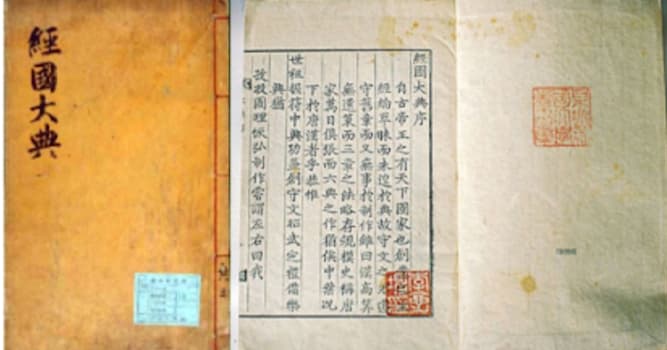 經國大典
經國大典序
自古帝王之有天下國家也創
經綸草昧而未遑於典故守文之
守舊章而又無事於制作雖曰漢高算
無遺策而三章之法略存規模史稱唐
家萬目俱張而六典之作猶俟中葉況
下於唐漢者乎恭惟
世祖握符中興功兼創守文昭武定禮備樂
興猶
孜孜圖理恢弘制作嘗謂左右曰我